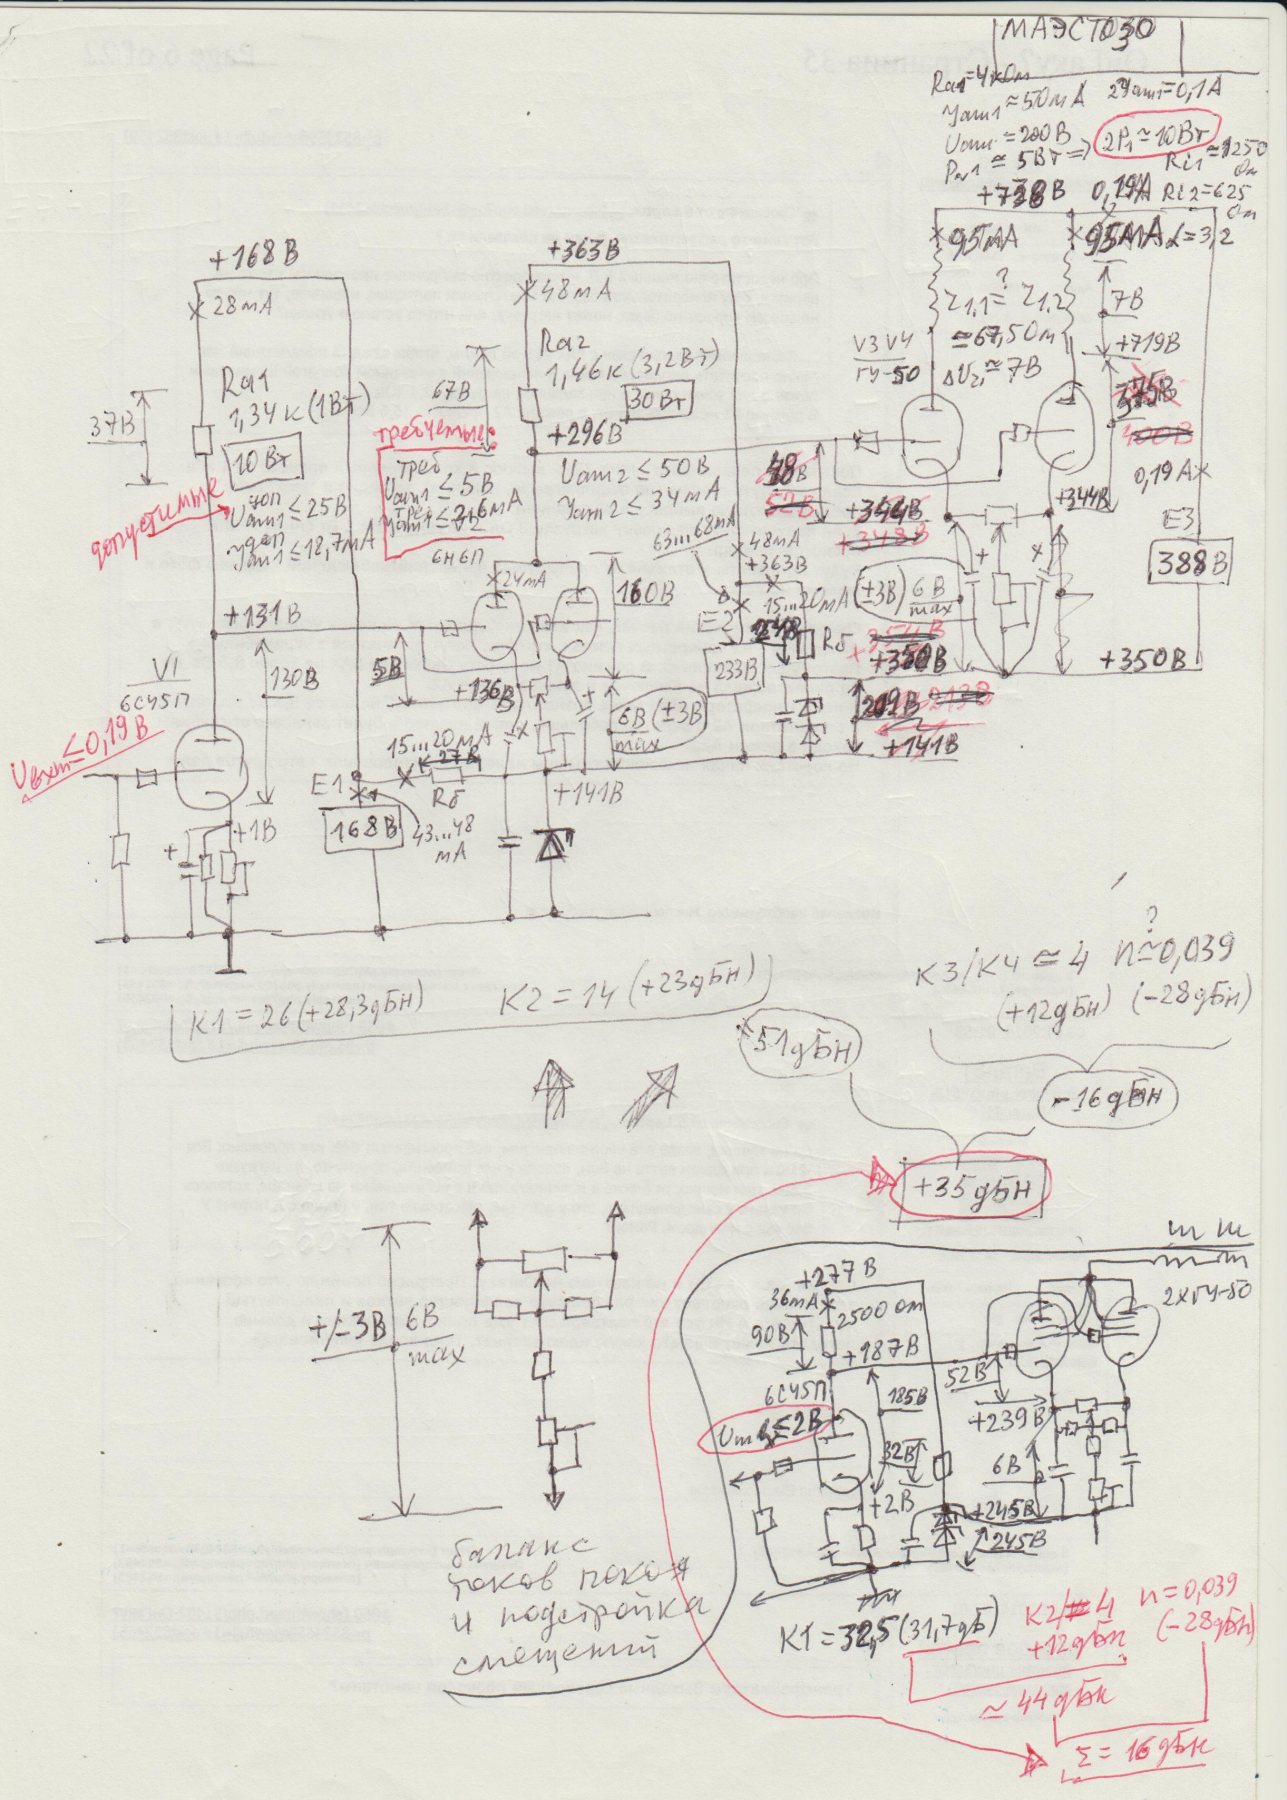 МАЭСТО30
Ra1=4кОм
Yam1≈50мА 2Yam1=0,1А
Uam1≈200В
2P1≃10Вт
Pм1≃5Вт⇒
Ri1≃1250 Ом
Ri2=625 Ом
+728В 0,19А
95мА 95мА α=3,2
+168В
28мА
+363В
48мА
Ra1
1,34к(1Вт)
10Вт
37В
Ra2
1,46к(3,2Вт)
30Вт
67В
+296В
Uam2≤50В
Yam2≤34мА
допустимые
доп
Uam1≤25В
доп
Yam1≤18,7мА
требуемые:
треб
Uam1≤5В
треб
6Н6П
V3V4
ГУ-50
Z1,1 =? Z1,2
≃67,5Ом
ΔUz1≃7В
7В
+719В
375В
400В
0,19А
48В
52В
+344В
+348В
+344В
E3
388В
63...68мА
48мА
+363В
15...20мА
(±3В) 6В max
E2
233В
Rб
+354В
+350В
+350В
209В 213В
+141В
24мА
160В
+131В
130В
V1
6С45П
5В
+136В
6В max (±3В)
15...20мА
27В
Rб
+141В
Uвхm≤0,19В
E1
168В
43...48 мА
+1В
K1=26(+28,3дБн)
K2=14(+23дБн)
K3/K4≃4 n≃0,039
?
(+12дБн) (-28дБн)
51дБн
-16дБн
+35дБн
+/-3В
6В
max
баланс
токов покоя
и подстройка
смещений
+277В
36мА
2500 Ом
90В
+187В
6С45П
185В
52В
+239В
32В
+2В
6В
+245В
245В
2хГУ-50
K1=32,5(31,7дБ)
K2/4 n=0,039
+12дБн (-28дБн)
≃44дБн
Σ=16дБн